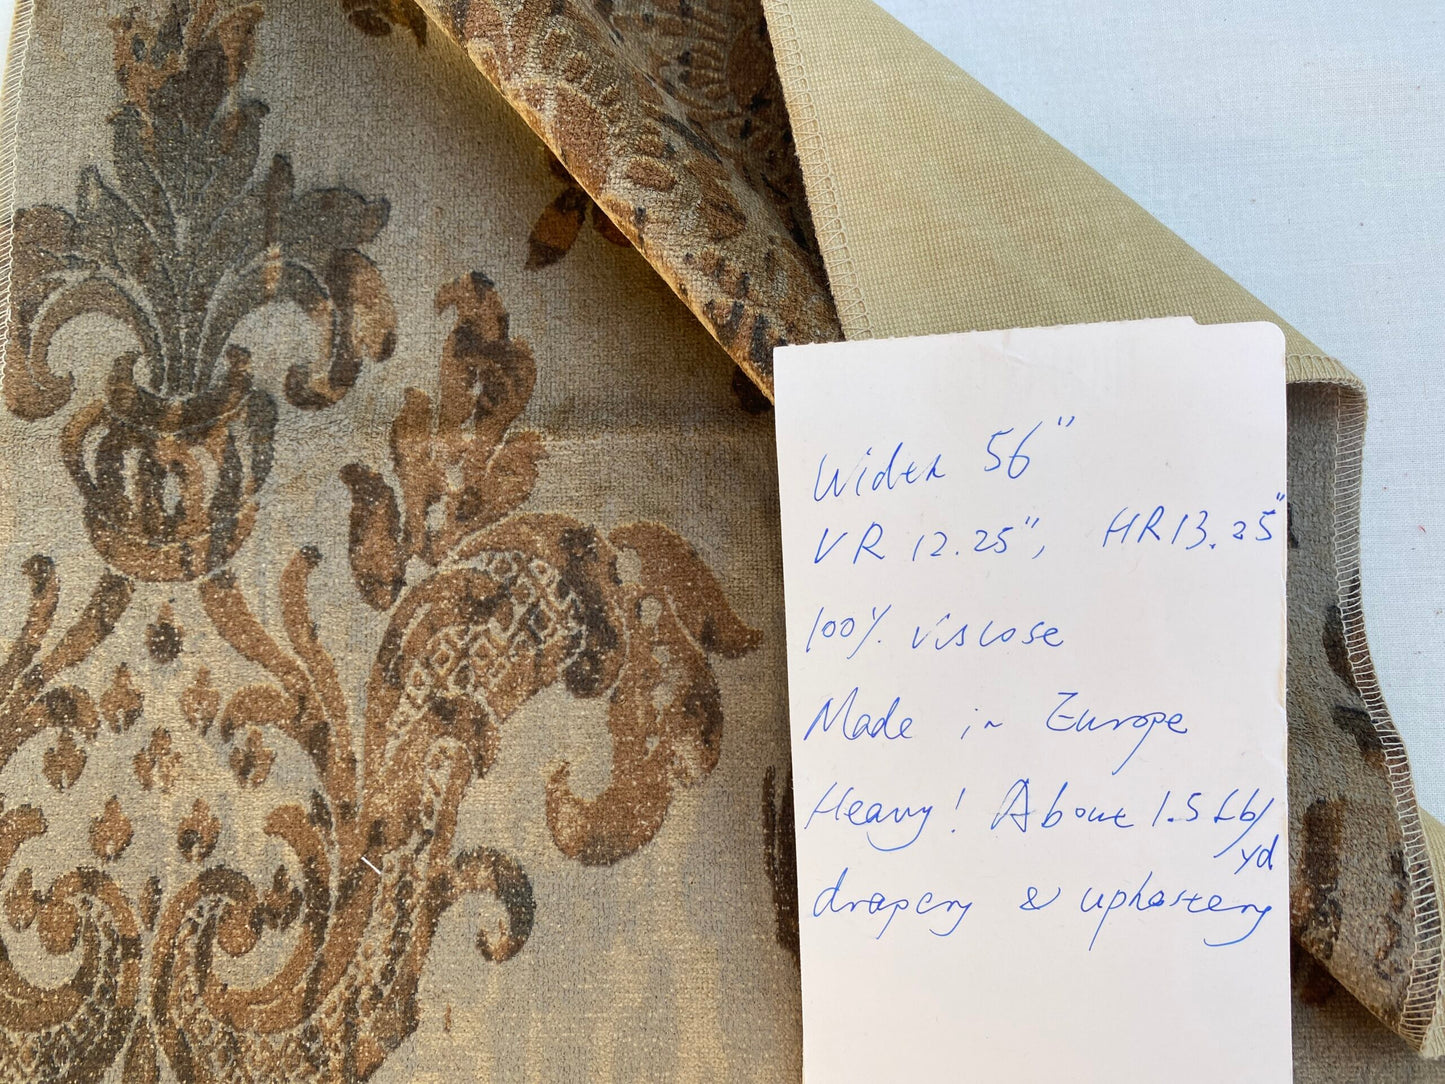 Width 56"
VR 12.25", HR13.25"
100% viscose
Made in Europe
Heavy! About 1.5 Lb/
yd
drapery & uphostery